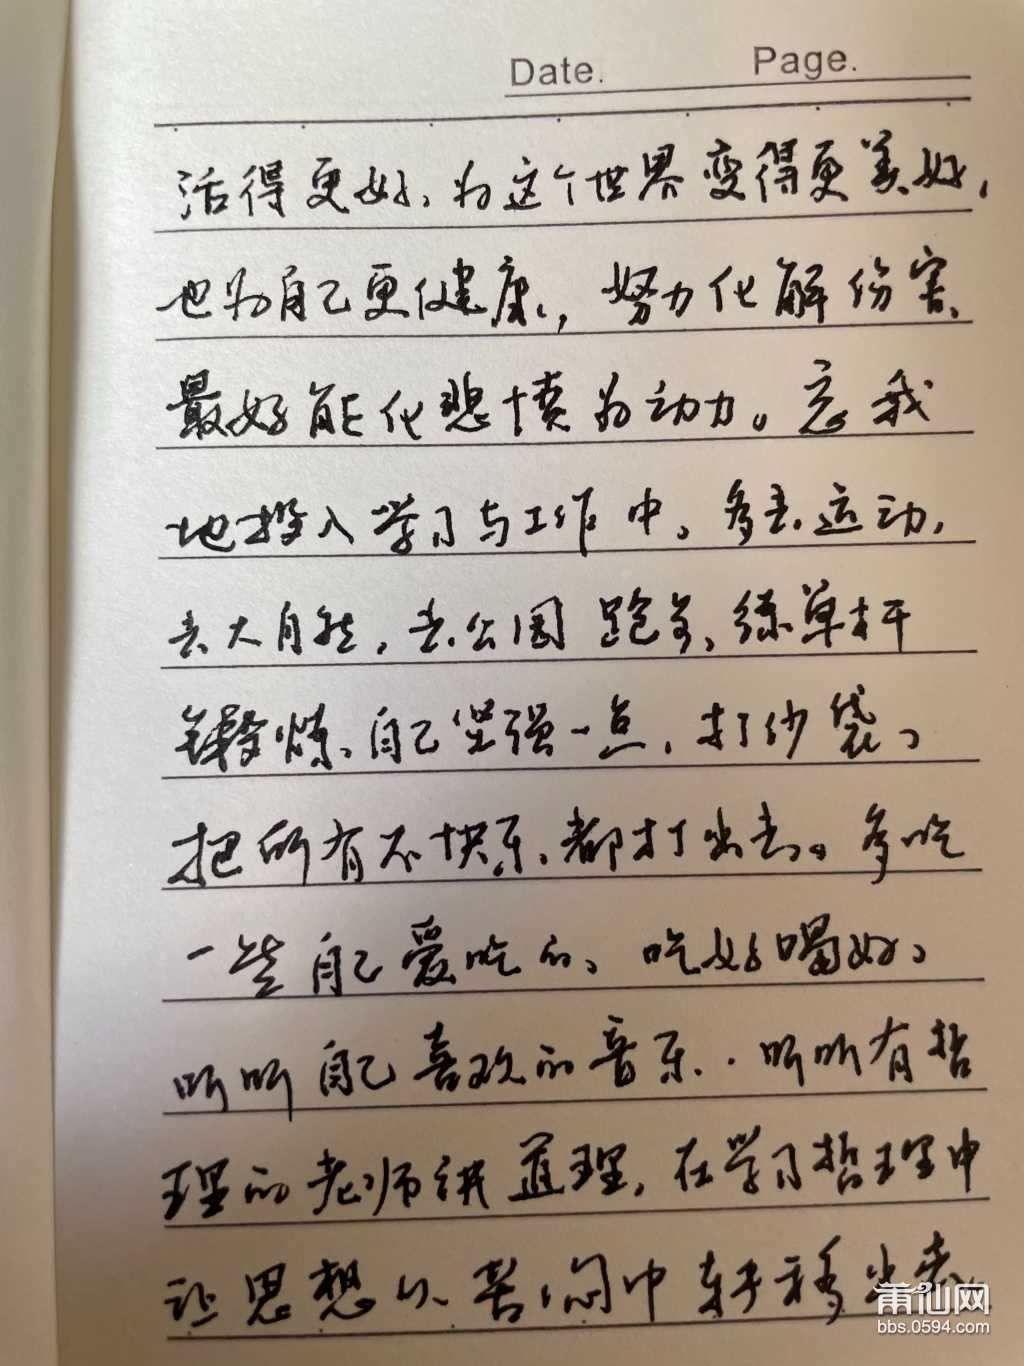 Date.
Page.
活得更好、为这个世界变得更美好，
也为自己更健康，努力化解伤害、
最好能化悲愤为动力。忘我
地投入学习与工作中。多去运动，
去大自然，去公园跑步、练单杠
锻炼、自己坚强一点，打沙袋、
把所有不快乐、都打出去。多吃
一些自己爱吃的、吃好喝好、
听听自己喜欢的音乐、听听有哲
理的老师讲道理，在学习哲理中
让思想从苦闷中转移出来
莆仙网
bbs.0594.com